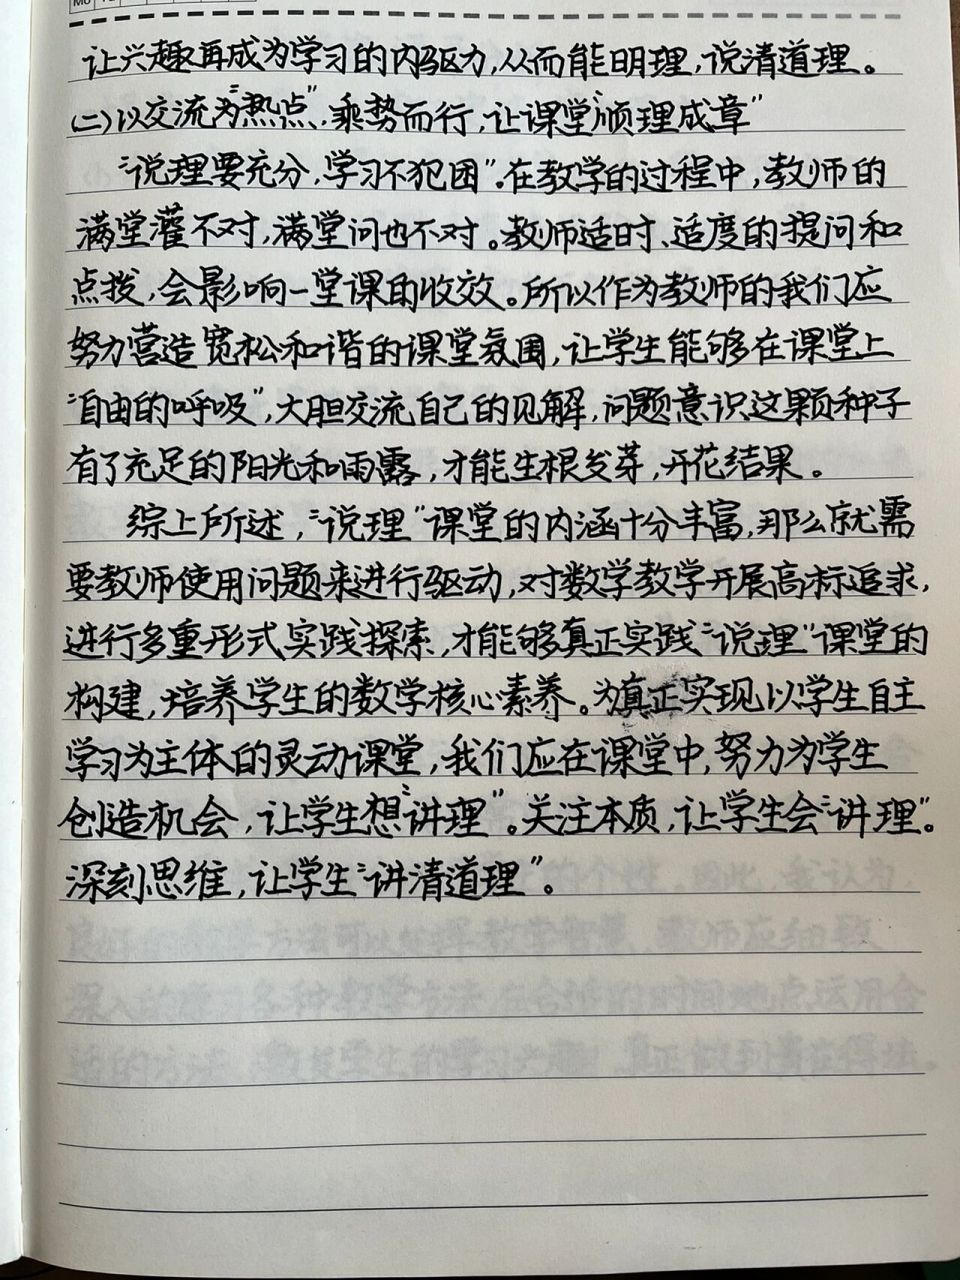 让兴趣再成为学习的内驱力,从而能明理,说清道理。
(二)以交流为“热点”,乘势而行,让课堂“顺理成章”
“说理要充分,学习不犯困”。在教学的过程中,教师的
满堂灌不对,满堂问也不对。教师适时、适度的提问和
点拨,会影响一堂课的收效。所以作为教师的我们应
努力营造宽松和谐的课堂氛围,让学生能够在课堂上
“自由的呼吸”,大胆交流自己的见解,问题意识这颗种子
有了充足的阳光和雨露,才能生根发芽,开花结果。
综上所述,“说理”课堂的内涵十分丰富,那么就需
要教师使用问题来进行驱动,对数学教学开展高标追求,
进行多重形式实践探索,才能够真正实践“说理”课堂的
构建,培养学生的数学核心素养。为真正实现以学生自主
学习为主体的灵动课堂,我们应在课堂中,努力为学生
创造机会,让学生想“讲理”。关注本质,让学生会“讲理”。
深刻思维,让学生“讲清道理”。